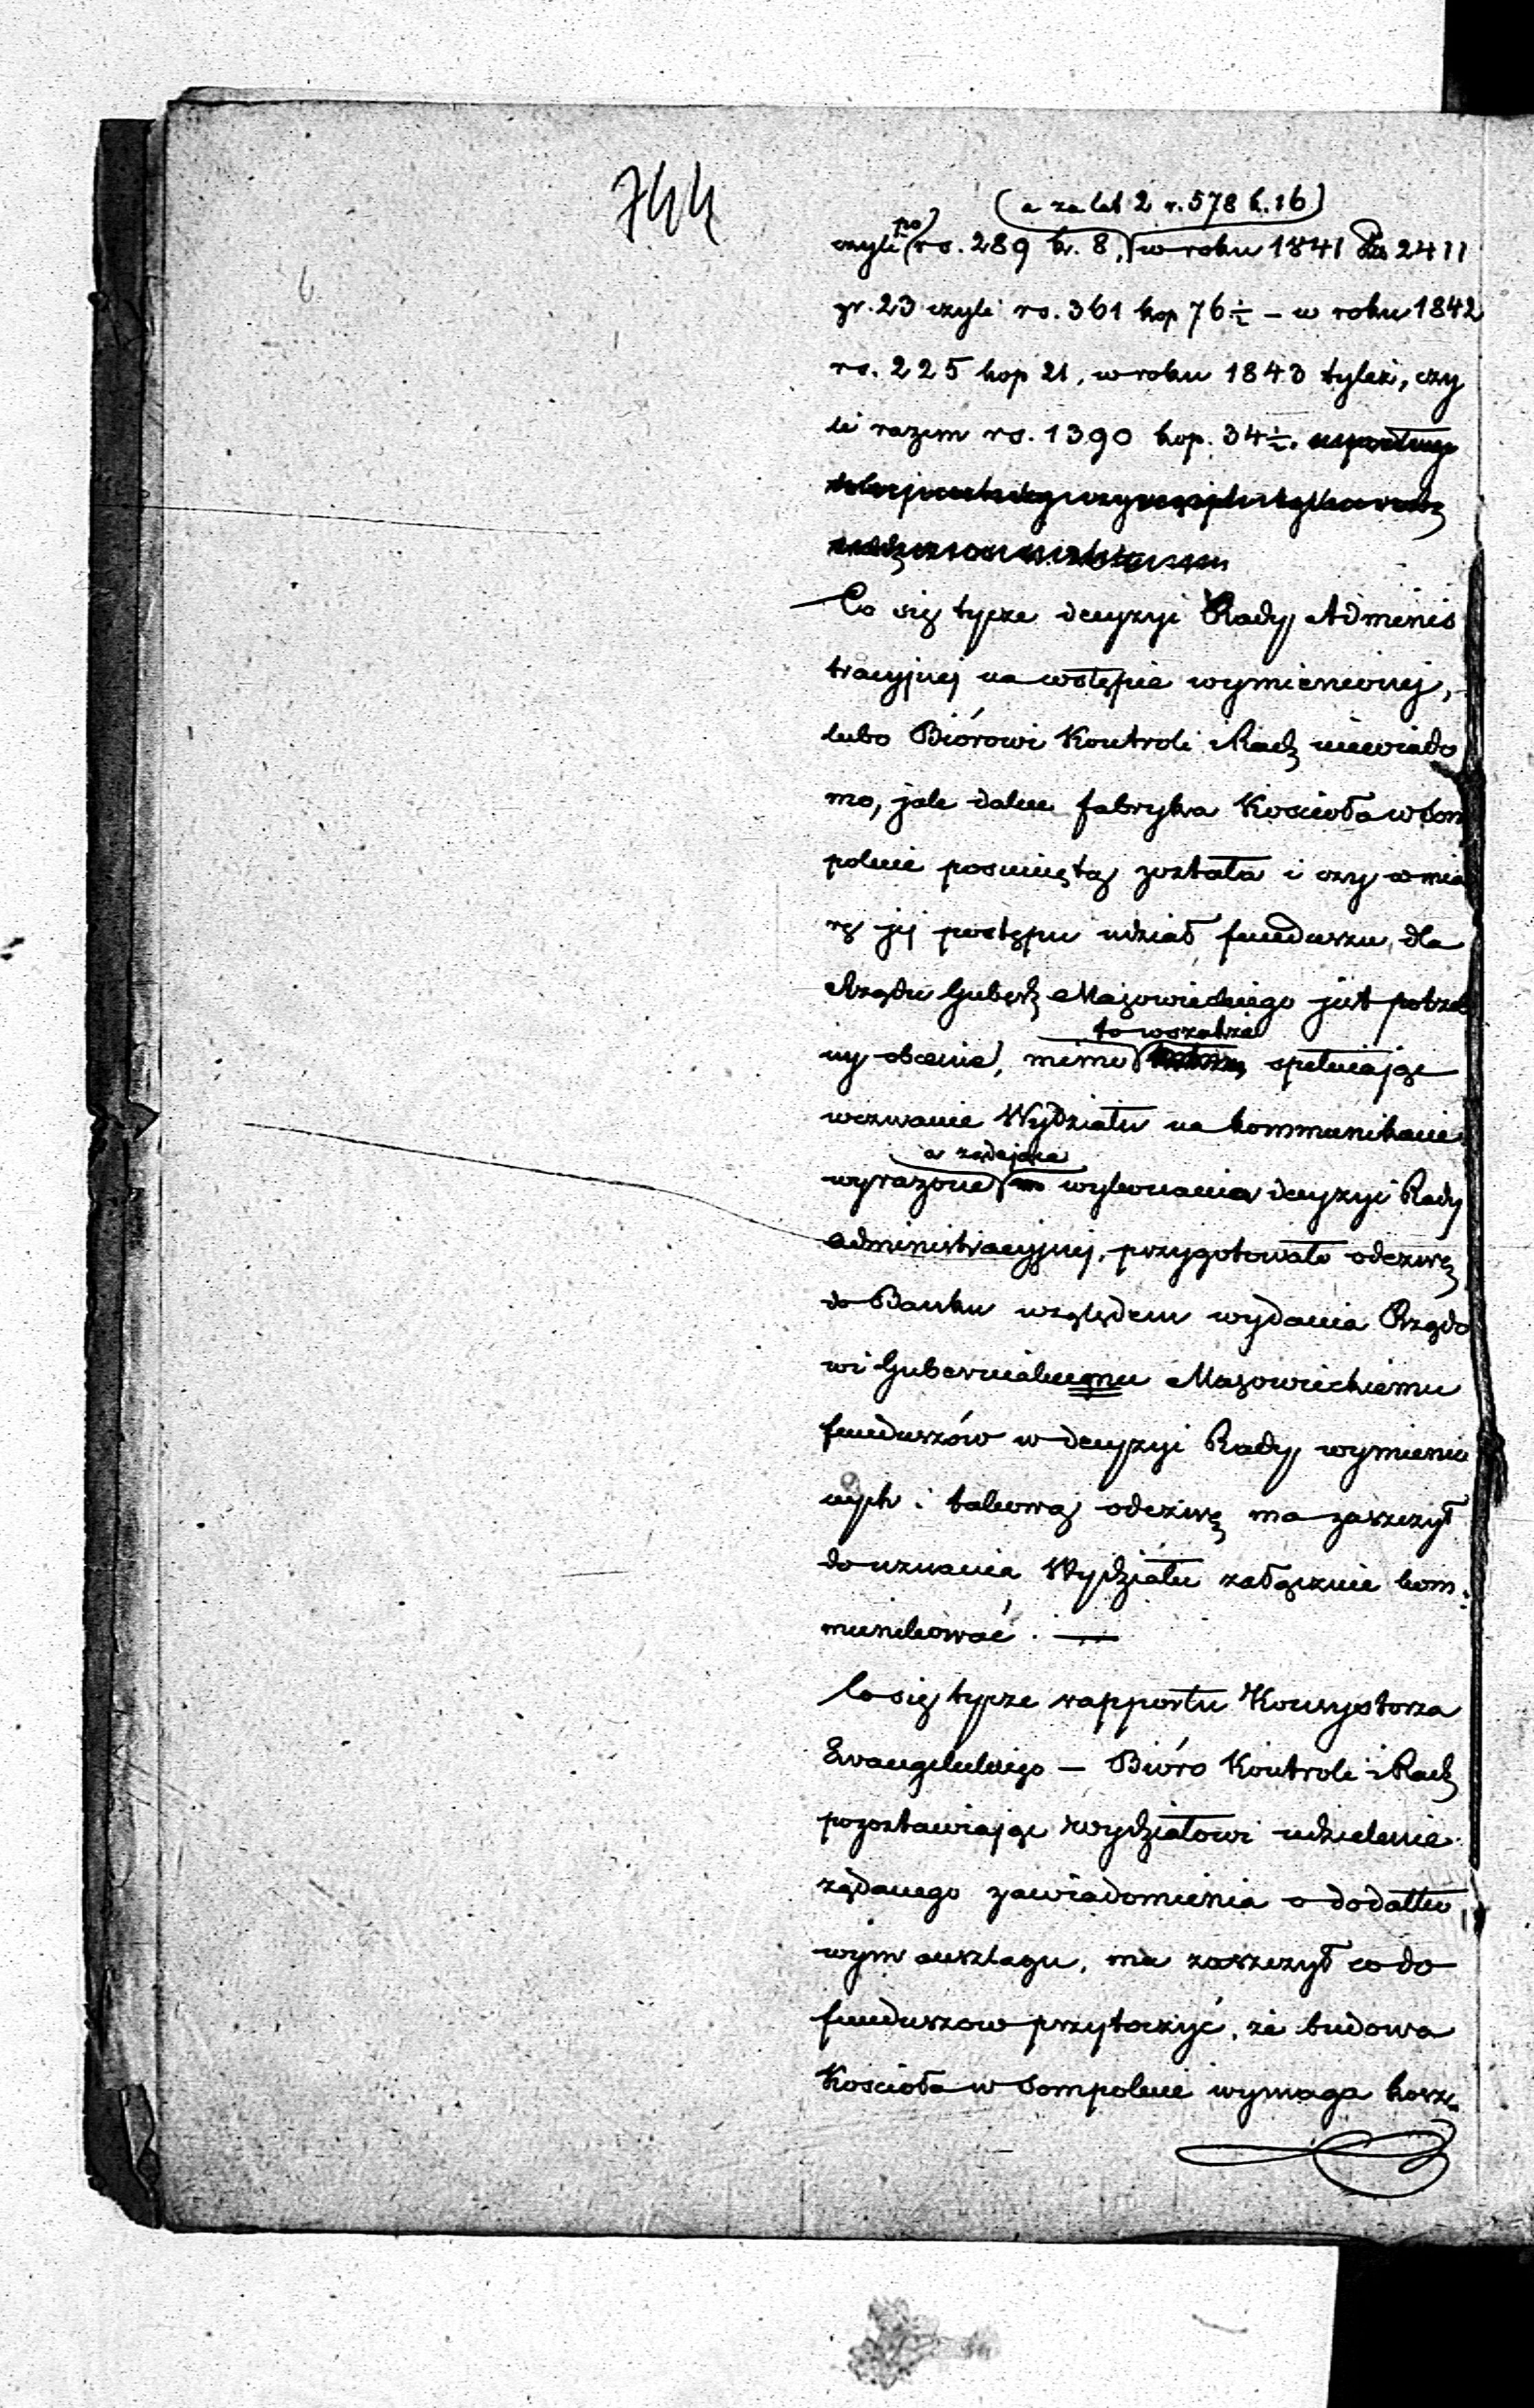 744
(a za lat 2 r. 578 k. 16)
po
czyli rs. 289 k. 8, w roku 1841 2411
gr. 23 czyli rs. 361 kop 76 ½ – w roku 1842
rs. 225 kop 21, w roku 1843 tyleż, czy
li razem rs. 1390 kop. 34 ½.
Co się tycze decyzyi Rady Adminis
tracyjnej na wstępie wymienionej,
lubo Biórowi Kontroli i Rach niewiado
mo, jak dalece fabryka Kościoła w Som
polnie posuniętą została i czy w mia
rę jej postępu udział funduszu, dla
Rządu Gubern Mazowieckiego jest potrzeb
to wszakże
ny obecnie, mimo spełniając
wezwanie Wydziału na kommunikacie
a żądające
wyrażone wykonania decyzyi Rady
Administracyjnej, przygotowało odezwę
do Banku względem wydania Rządo
wi Gubernialnemu Mazowieckiemu
funduszów w decyzyi Rady wymienio
nych i takową odezwę ma zaszczyt
do uznania Wydziału załącznie kom
munikować. —
Co się tycze rapportu Konsystorza
Ewangelickiego — Bióro Kontroli i Rach
pozostawiając Wydziałowi udzielenie
żądanego zawiadomienia o dodatko
wym anszlagu, ma zaszczyt co do
funduszow przytoczyć, że budowa
Kościoła w Sompolnie wymaga kosz